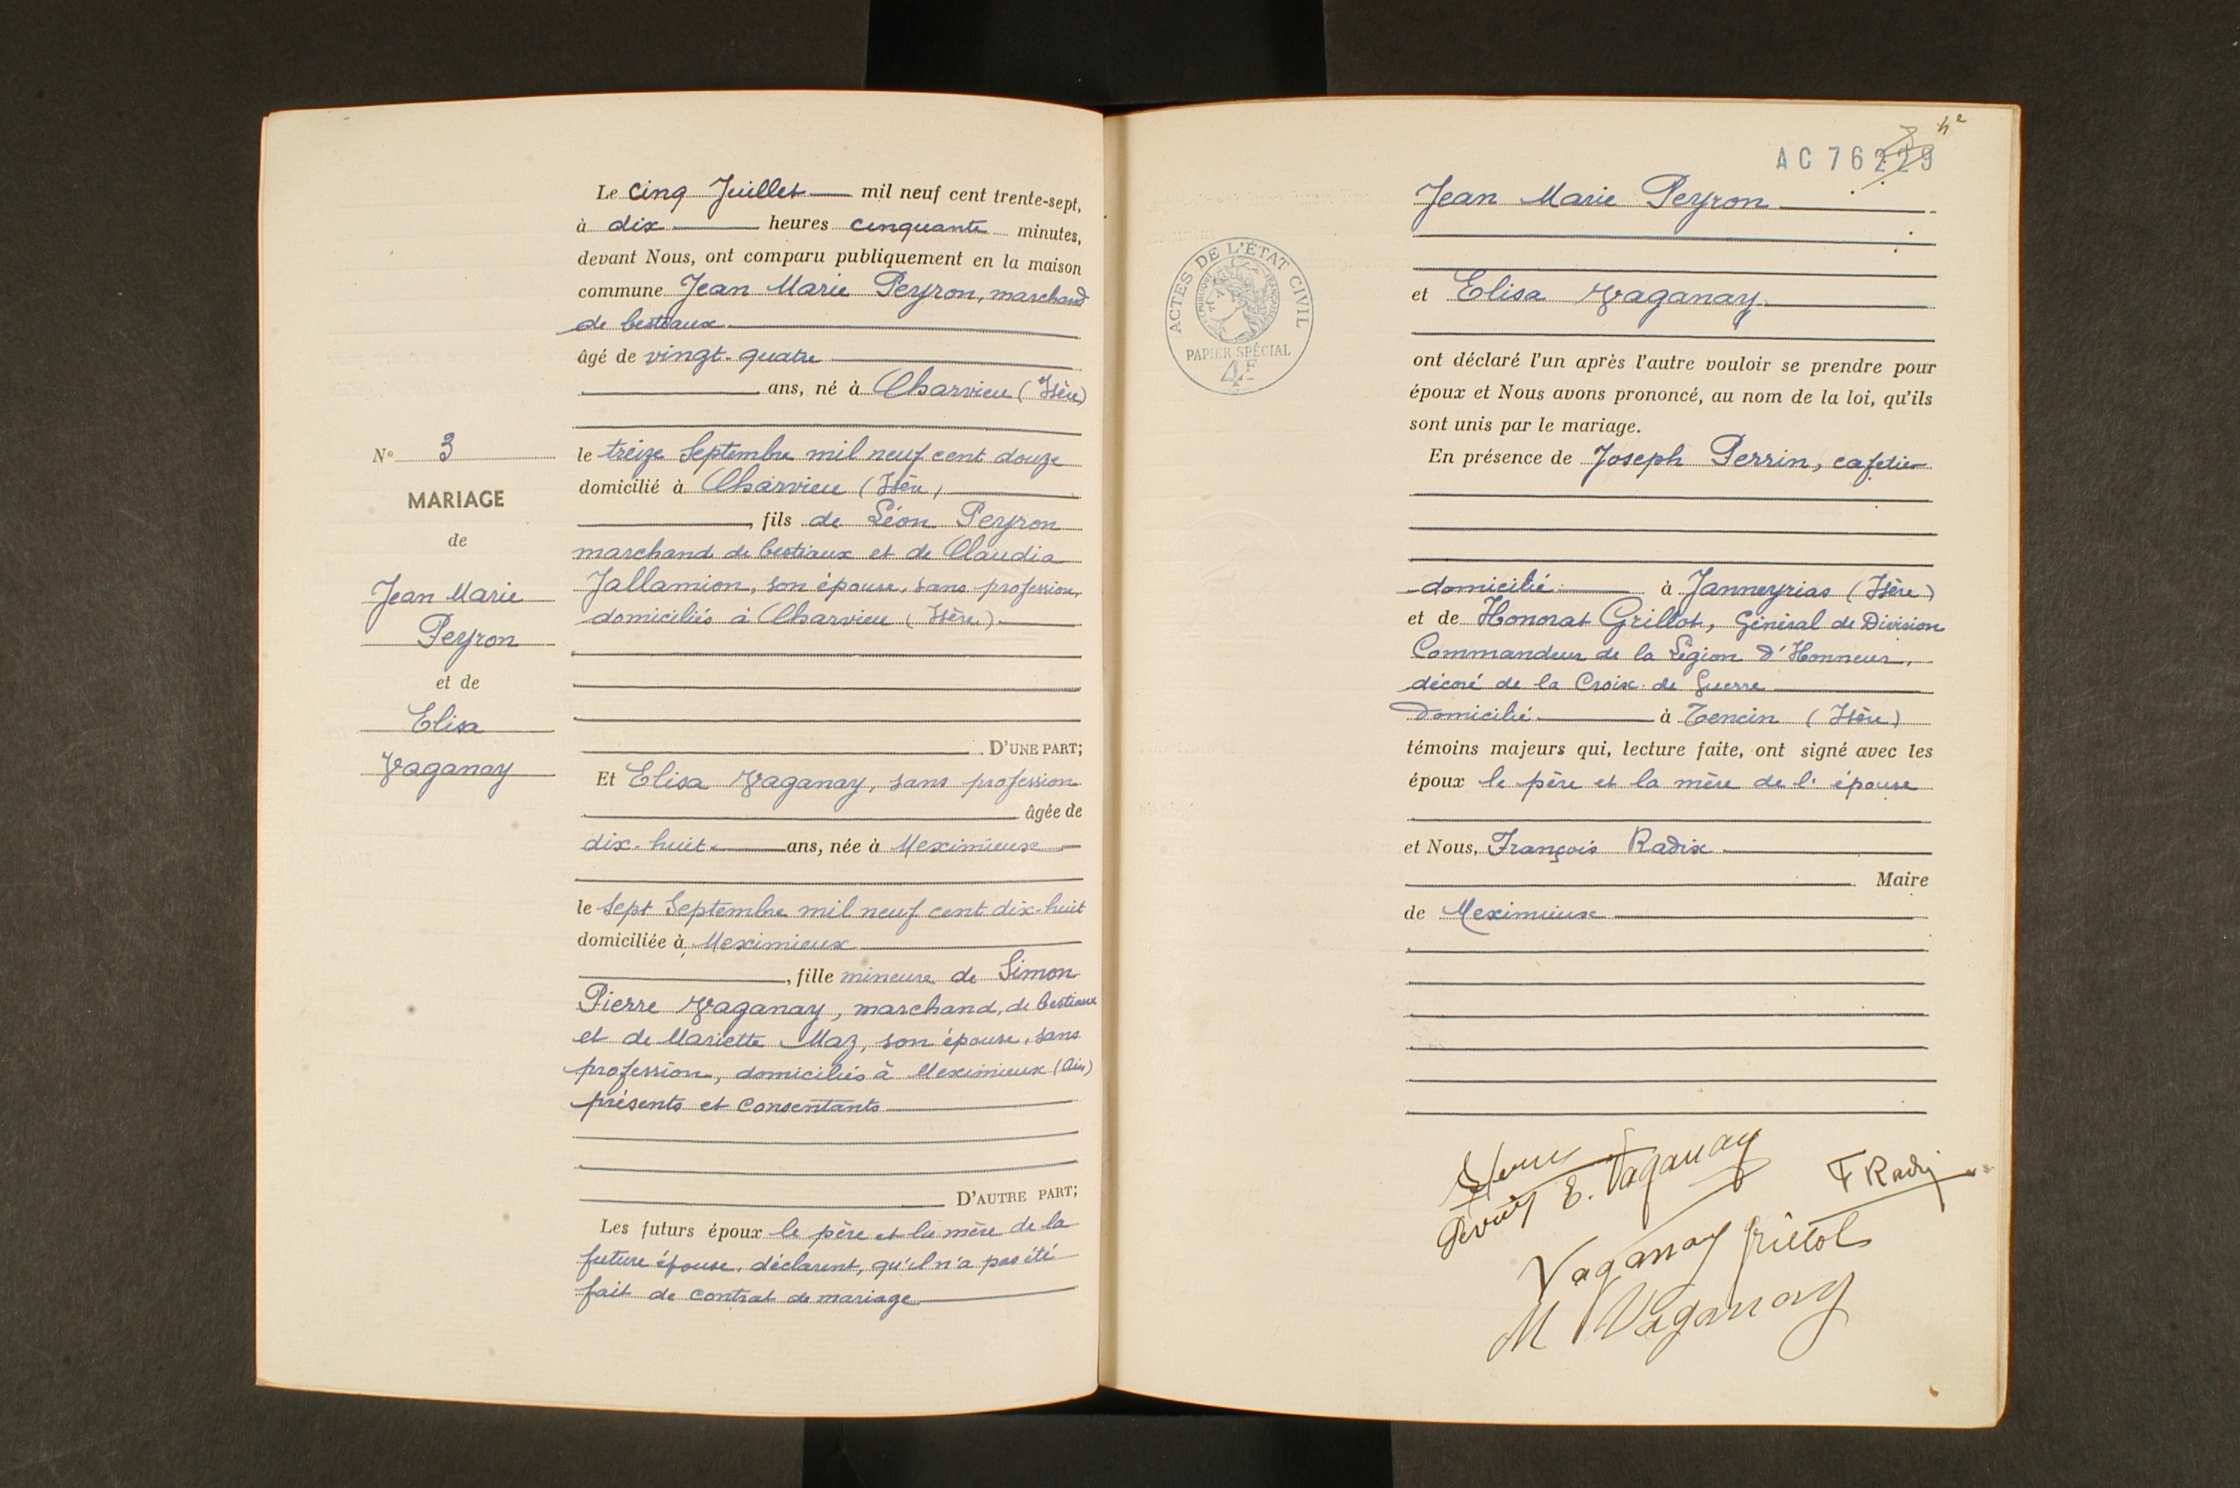 Le cinq Juillet mil neuf cent trente-sept,
à dix heures cinquante minutes,
devant Nous, ont comparu publiquement en la maison
commune Jean Marie Peyron, marchand
de bestiaux
âgé de vingt-quatre
ans, né à Charvieu (Isère)
le treize Septembre mil neuf cent douze
domicilié à Charvieu (Isère)
, fils de Léon Peyron
marchand de bestiaux et de Claudia
Jallamion, son épouse, sans profession,
domiciliés à Charvieu (Isère).
D'UNE PART;
Et Elisa Vaganay, sans profession
âgée de
dix-huit ans, née à Meximieux
le sept Septembre mil neuf cent dix-huit
domiciliée à Meximieux
, fille mineure de Simon
Pierre Vaganay, marchand de bestiaux
et de Mariette Maz, son épouse, sans
profession, domiciliés à Meximieux (Ain)
présents et consentants
D'AUTRE PART;
Les futurs époux le père et la mère de la
future épouse, déclarent, qu'il n'a pas été
fait de contrat de mariage
N° 3
MARIAGE
de
Jean Marie
Peyron
et de
Elisa
Vaganay
AC 76229
Jean Marie Peyron
et Elisa Vaganay
ont déclaré l'un après l'autre vouloir se prendre pour
époux et Nous avons prononcé, au nom de la loi, qu'ils
sont unis par le mariage.
En présence de Joseph Perrin, cafetier
domicilié à Janneyrias (Isère)
et de Honorat Grillot, Général de Division
Commandeur de la Légion d'Honneur,
décoré de la Croix de Guerre
Domicilié à Tencin (Isère)
témoins majeurs qui, lecture faite, ont signé avec les
époux le père et la mère de l'épouse
et Nous, François Radix
Maire
de Meximieux
ACTES DE L'ÉTAT CIVIL
RÉPUBLIQUE FRANÇAISE
PAPIER SPÉCIAL
4F
E. Vaganay
F Radix
Vaganay Grillot
M Vaganay